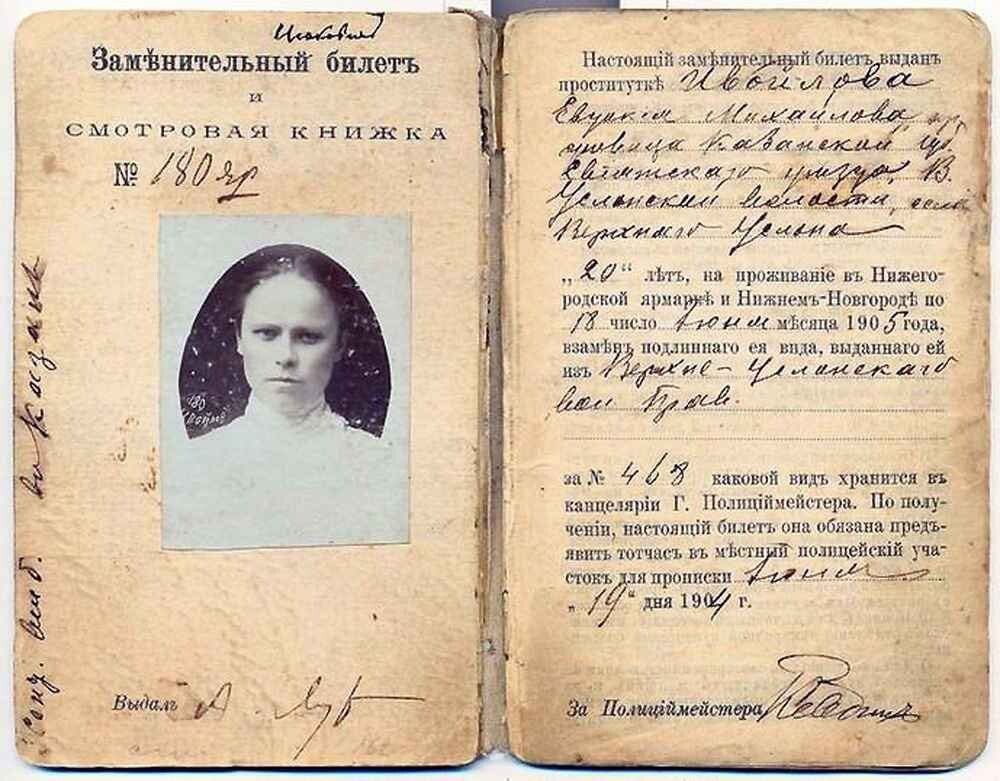 Замѣнительный билетъ
и
СМОТРОВАЯ КНИЖКА
№ 180 яр
180
въ Казань
Выдалъ
Настоящій замѣнительный билетъ выданъ
проституткѣ Ивойлова
Евдокія Михайлова
Казанской губ
уѣзда, В.
Услонской волости, села
Верхняго Услона
„20“ лѣтъ, на проживаніе въ Нижего-
родской ярмаркѣ и Нижнемъ-Новгородѣ по
18 число Іюня мѣсяца 1905 года,
взамѣнъ подлиннаго ея вида, выданнаго ей
изъ Верхне-Услонскаго
вол Прав.
за № 468 каковой видъ хранится въ
канцеляріи Г. Полиціймейстера. По полу-
ченіи, настоящій билетъ она обязана предъ-
явить тотчасъ въ мѣстный полицейскій уча-
стокъ для прописки Іюня
„19“ дня 1904 г.
За Полиціймейстера